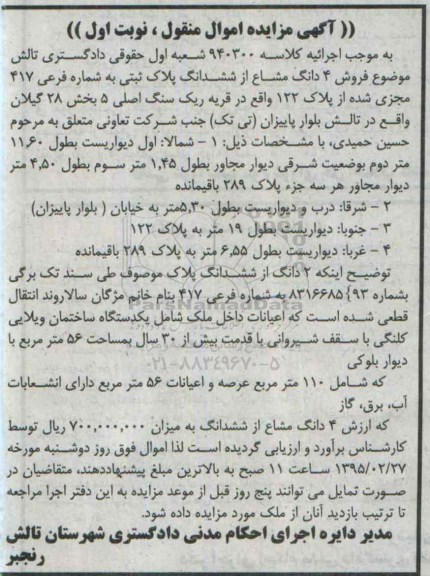 (( آگهی مزایده اموال منقول ، نوبت اول ))
به موجب اجرائیه کلاسه ۹۴۰۳۰۰ شعبه اول حقوقی دادگستری تالش
موضوع فروش ۴ دانگ مشاع از ششدانگ پلاک ثبتی به شماره فرعی ۴۱۷
مجزی شده از پلاک ۱۲۲ واقع در قریه ریک سنگ اصلی ۵ بخش ۲۸ گیلان
واقع در تالش بلوار پاییزان (تی تک) جنب شرکت تعاونی متعلق به مرحوم
حسین حمیدی، با مشخصات ذیل: ۱ – شمالا: اول دیواریست بطول ۱۱,۶۰
متر دوم بوضعیت شرقی دیوار مجاور بطول ۱,۴۵ متر سوم بطول ۴,۵۰ متر
دیوار مجاور هر سه جزء پلاک ۲۸۹ باقیمانده
۲ – شرقا: درب و دیواریست بطول ۵,۳۰متر به خیابان ( بلوار پاییزان)
۳ – جنوبا: دیواریست بطول ۱۹ متر به پلاک ۱۲۲
۴ – غربا: دیواریست بطول ۶,۵۵ متر به پلاک ۲۸۹ باقیمانده
توضیح اینکه ۲ دانگ از ششدانگ پلاک موصوف طی سند تک برگی
بشماره ۹۳}۸۳۱۶۶۸۵ به شماره فرعی ۴۱۷ بنام خانم مژگان سالاروند انتقال
قطعی شده است که اعیانات داخل ملک شامل یکدستگاه ساختمان ویلایی
کلنگی با سقف شیروانی با قدمت بیش از ۳۰ سال بمساحت ۵۶ متر مربع با
دیوار بلوکی
۰۲۱-۸۸۳۴۹۶۷۰-۵
که شامل ۱۱۰ متر مربع عرصه و اعیانات ۵۶ متر مربع دارای انشعابات
آب، برق، گاز
که ارزش ۴ دانگ مشاع از ششدانگ به میزان ۷۰۰,۰۰۰,۰۰۰ ریال توسط
کارشناس برآورد و ارزیابی گردیده است لذا اموال فوق روز دوشنبه مورخه
۱۳۹۵/۰۲/۲۷ ساعت ۱۱ صبح به بالاترین مبلغ پیشنهاددهند، متقاضیان در
صورت تمایل می توانند پنج روز قبل از موعد مزایده به این دفتر اجرا مراجعه
تا ترتیب بازدید آنان از ملک مورد مزایده داده شود.
مدیر دایره اجرای احکام مدنی دادگستری شهرستان تالش
رنجبر